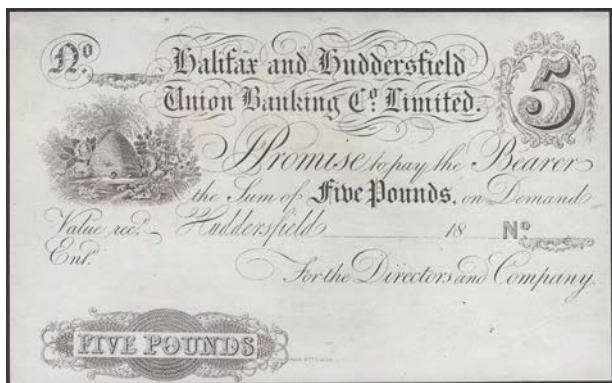 No
Halifax and Huddersfield
Union Banking Co. Limited.
5
Promise to pay the Bearer
the Sum of Five Pounds, on Demand
Value recd. Huddersfield 18 No
Entd.
For the Directors and Company.
FIVE POUNDS